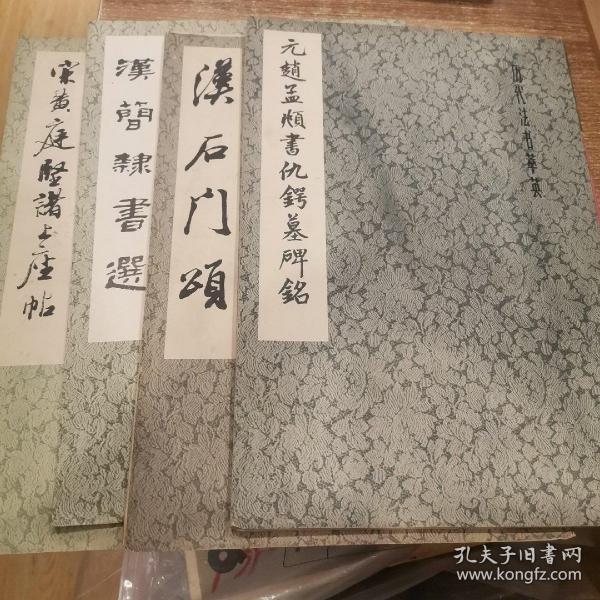 宋黄庭堅諸上座帖
漢簡隸書選
漢石门頌
元趙孟頫書仇鍔墓碑銘
历代法书萃英
孔夫子旧书网
www.kongfz.com